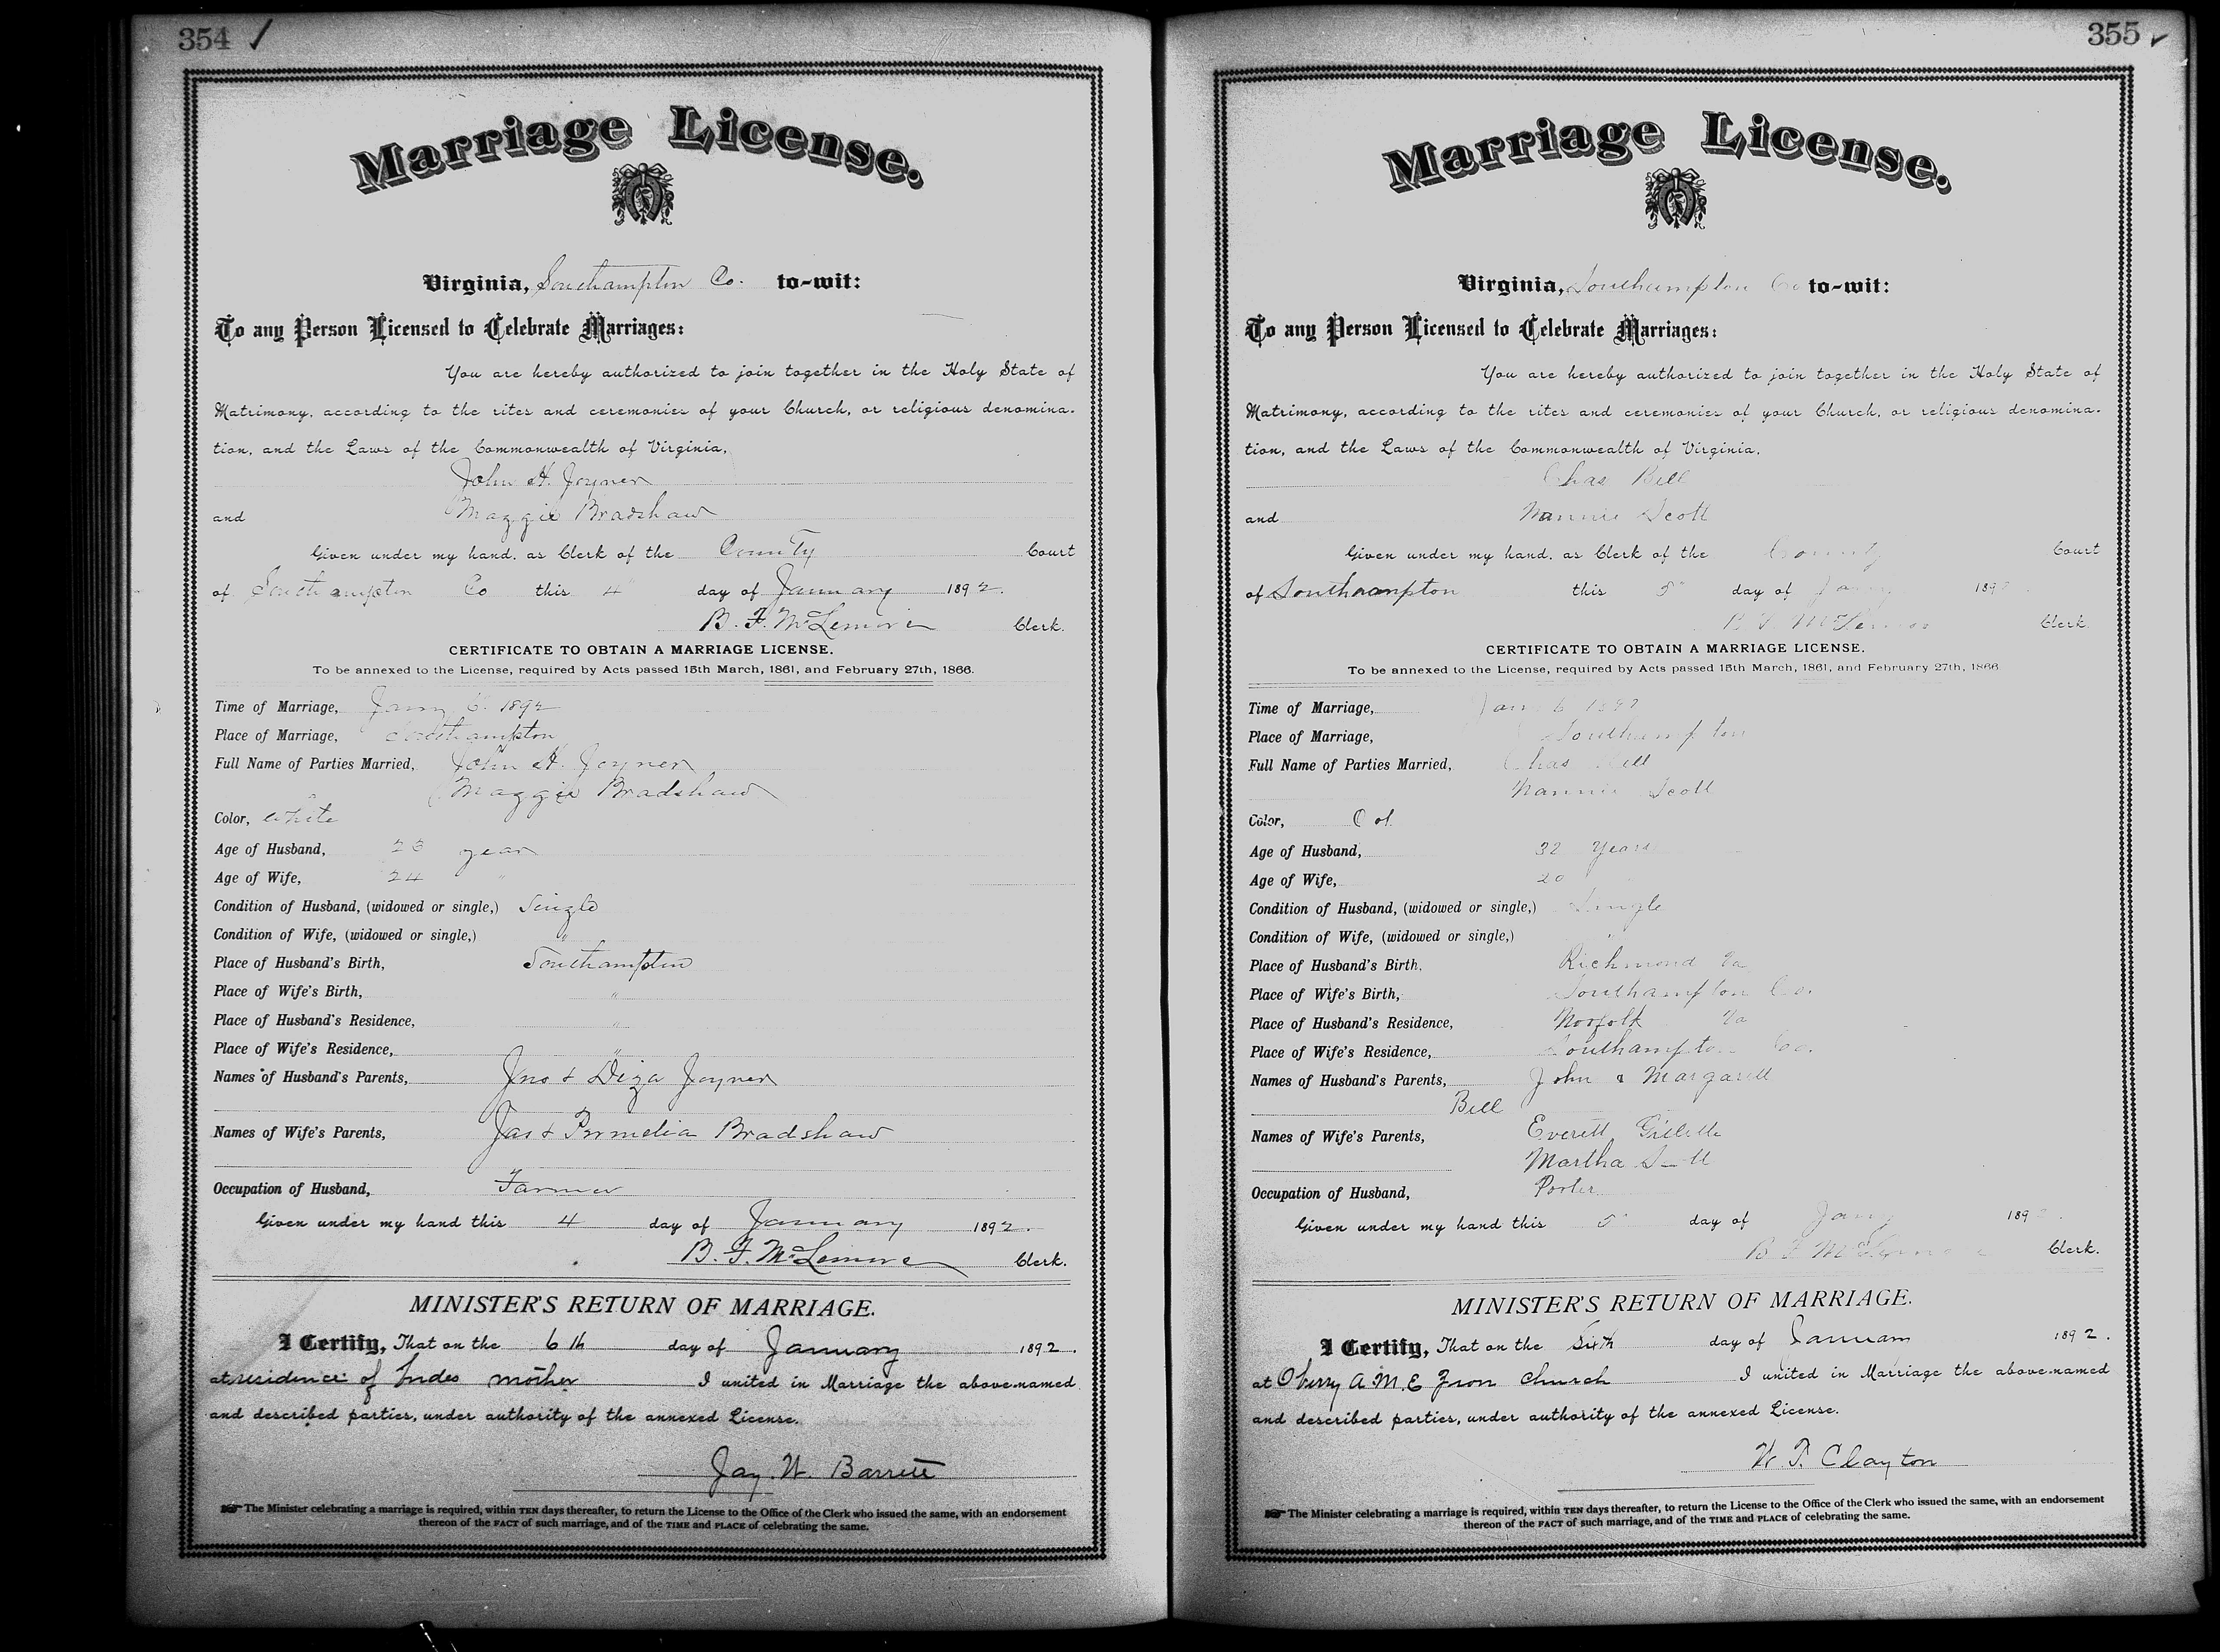 354
Marriage License.
Virginia, Southampton Co. to-wit:
To any Person Licensed to Celebrate Marriages:
You are hereby authorized to join together in the Holy State of
Matrimony, according to the rites and ceremonies of your Church, or religious denomina-
tion, and the Laws of the Commonwealth of Virginia,
John H. Joyner
and Maggie Bradshaw
Given under my hand, as Clerk of the County Court
of Southampton Co this 4" day of January 1892.
B. F. McLemore Clerk.
CERTIFICATE TO OBTAIN A MARRIAGE LICENSE.
To be annexed to the License, required by Acts passed 15th March, 1861, and February 27th, 1866.
Time of Marriage, Jany 6 1892
Place of Marriage, Southampton
Full Name of Parties Married, John H. Joyner
Maggie Bradshaw
Color, White
Age of Husband, 23 year
Age of Wife, 24 "
Condition of Husband, (widowed or single,) Single
Condition of Wife, (widowed or single,) "
Place of Husband's Birth, Southampton
Place of Wife's Birth, "
Place of Husband's Residence, "
Place of Wife's Residence, "
Names of Husband's Parents, Jno & Diza Joyner
Names of Wife's Parents, Jas & Permelia Bradshaw
Occupation of Husband, Farmer
Given under my hand this 4 day of January 1892.
B. F. McLemore Clerk.
MINISTER'S RETURN OF MARRIAGE.
I Certify, That on the 6th day of January 1892.
at residence of brides mother I united in Marriage the above-named
and described parties, under authority of the annexed License.
Jay. W. Barrett
The Minister celebrating a marriage is required, within TEN days thereafter, to return the License to the Office of the Clerk who issued the same, with an endorsement
thereon of the FACT of such marriage, and of the TIME and PLACE of celebrating the same.
355
Marriage License.
Virginia, Southampton Co to-wit:
To any Person Licensed to Celebrate Marriages:
You are hereby authorized to join together in the Holy State of
Matrimony, according to the rites and ceremonies of your Church, or religious denomina-
tion, and the Laws of the Commonwealth of Virginia,
Chas Bell
and Nannie Scott
Given under my hand, as Clerk of the County Court
of Southampton this 5" day of Jany 1892
B F McLemore Clerk.
CERTIFICATE TO OBTAIN A MARRIAGE LICENSE.
To be annexed to the License, required by Acts passed 15th March, 1861, and February 27th, 1866
Time of Marriage, Jany 6 1892
Place of Marriage, Southampton
Full Name of Parties Married, Chas Bell
Nannie Scott
Color, Col
Age of Husband, 32 Years
Age of Wife, 20
Condition of Husband, (widowed or single,) Single
Condition of Wife, (widowed or single,) "
Place of Husband's Birth, Richmond Va
Place of Wife's Birth, Southampton Co.
Place of Husband's Residence, Norfolk Va
Place of Wife's Residence, Southampton Co.
Names of Husband's Parents, John & Margarett
Bell
Names of Wife's Parents, Everett Gillette
Martha Scott
Occupation of Husband, Porter
Given under my hand this 5" day of Jany 189
B F McLemore Clerk.
MINISTER'S RETURN OF MARRIAGE.
I Certify, That on the Sixth day of January 1892.
at Oberry A.M.E Zion Church I united in Marriage the above-named
and described parties, under authority of the annexed License.
W. T. Clayton
The Minister celebrating a marriage is required, within TEN days thereafter, to return the License to the Office of the Clerk who issued the same, with an endorsement
thereon of the FACT of such marriage, and of the TIME and PLACE of celebrating the same.